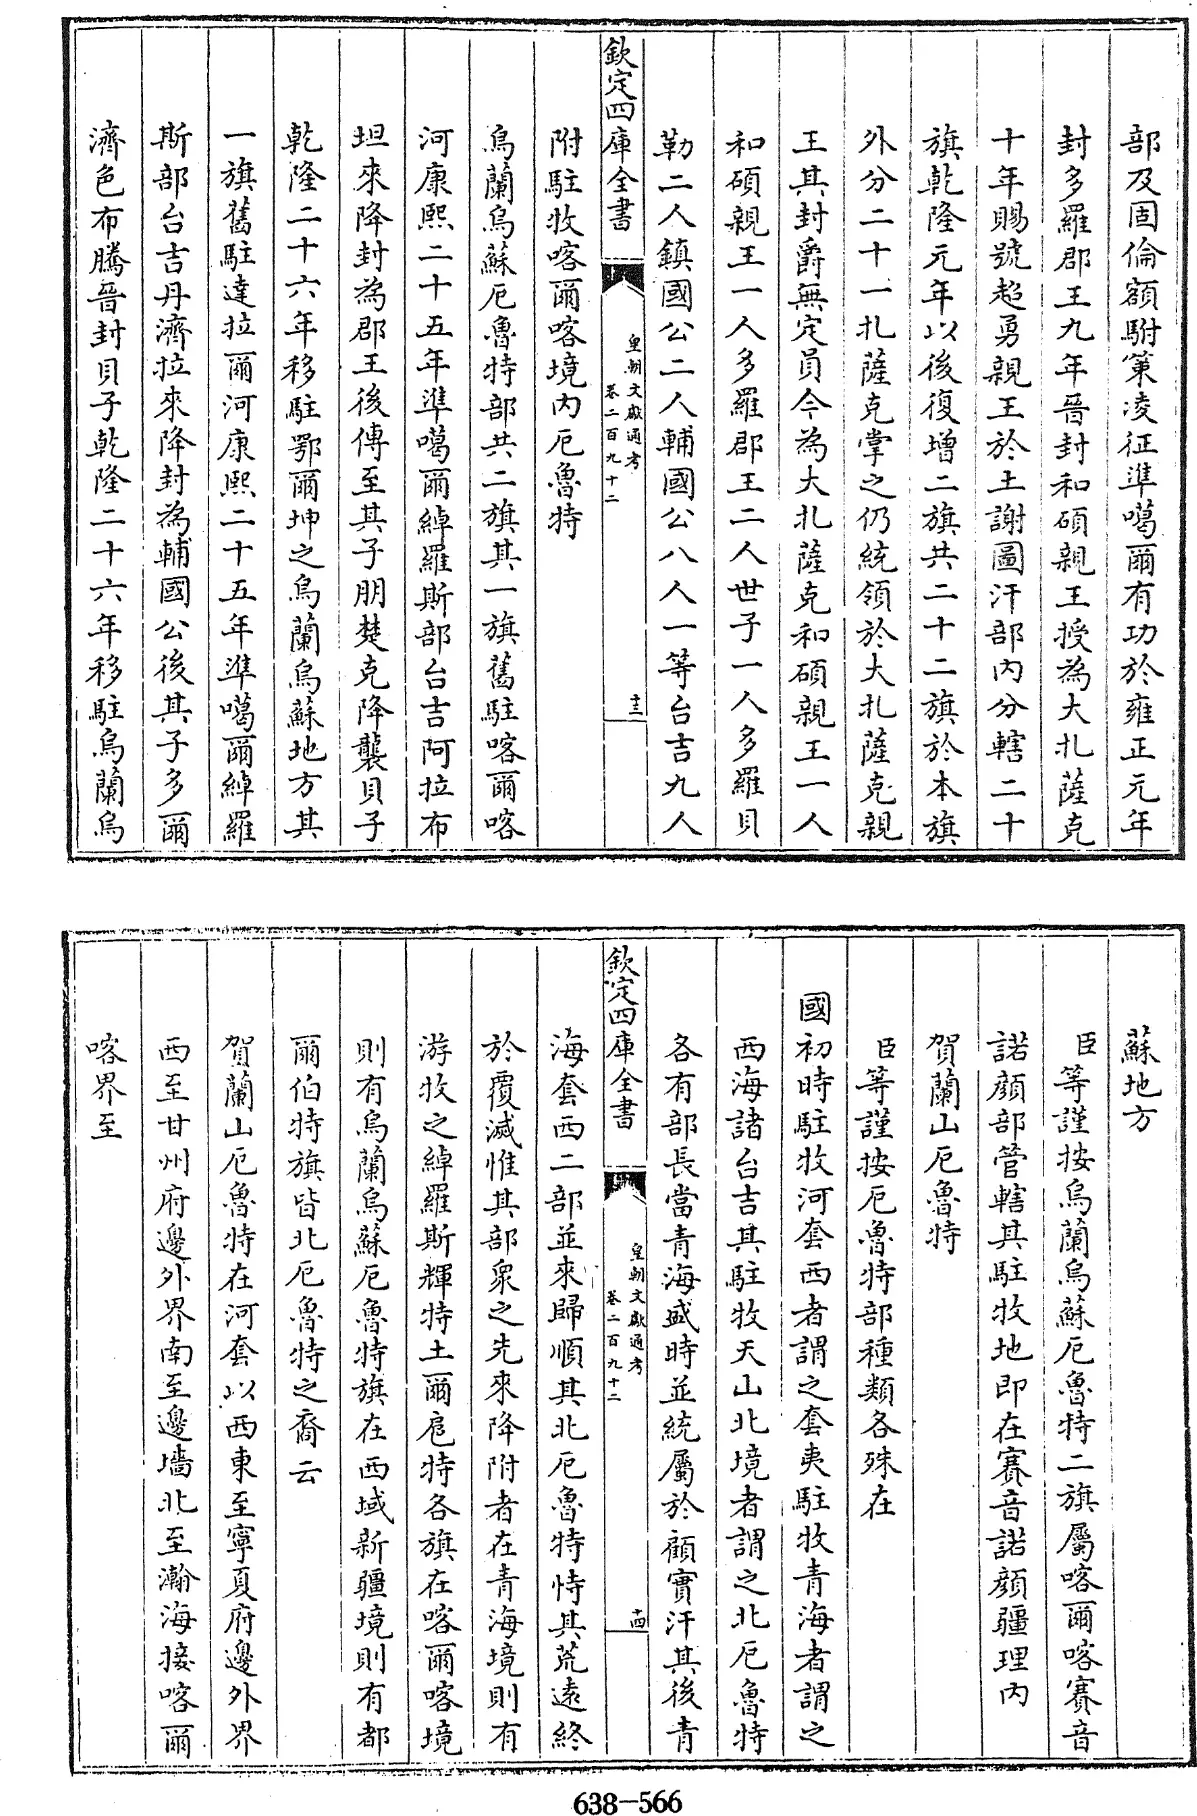 部及固倫額駙策凌征準噶爾有功於雍正元年
封多羅郡王九年晉封和碩親王授為大扎薩克
十年賜號超勇親王於土謝圖汗部內分轄二十
旗乾隆元年以後復增二旗共二十二旗於本旗
外分二十一扎薩克掌之仍統領於大扎薩克親
王其封爵無定員今為大扎薩克和碩親王一人
和碩親王一人多羅郡王二人世子一人多羅貝
勒二人鎮國公二人輔國公八人一等台吉九人
欽定四庫全書
皇朝文獻通考
卷二百九十二
十三
附駐牧喀爾喀境內厄魯特
烏蘭烏蘇厄魯特部共二旗其一旗舊駐喀爾喀
河康熙二十五年準噶爾綽羅斯部台吉阿拉布
坦來降封為郡王後傳至其子朋楚克降襲貝子
乾隆二十六年移駐鄂爾坤之烏蘭烏蘇地方其
一旗舊駐達拉爾河康熙二十五年準噶爾綽羅
斯部台吉丹濟拉來降封為輔國公後其子多爾
濟色布騰晉封貝子乾隆二十六年移駐烏蘭烏
蘇地方
臣等謹按烏蘭烏蘇厄魯特二旗屬喀爾喀賽音
諾顏部管轄其駐牧地即在賽音諾顏疆理內
賀蘭山厄魯特
臣等謹按厄魯特部種類各殊在
國初時駐牧河套西者謂之套夷駐牧青海者謂之
西海諸台吉其駐牧天山北境者謂之北厄魯特
各有部長當青海盛時並統屬於顧實汗其後青
欽定四庫全書
皇朝文獻通考
卷二百九十二
十四
海套西二部並來歸順其北厄魯特恃其荒遠終
於覆滅惟其部衆之先來降附者在青海境則有
游牧之綽羅斯輝特土爾扈特各旗在喀爾喀境
則有烏蘭烏蘇厄魯特旗在西域新疆境則有都
爾伯特旗皆北厄魯特之裔云
賀蘭山厄魯特在河套以西東至寧夏府邊外界
西至甘州府邊外界南至邊墻北至瀚海接喀爾
喀界至
638-566